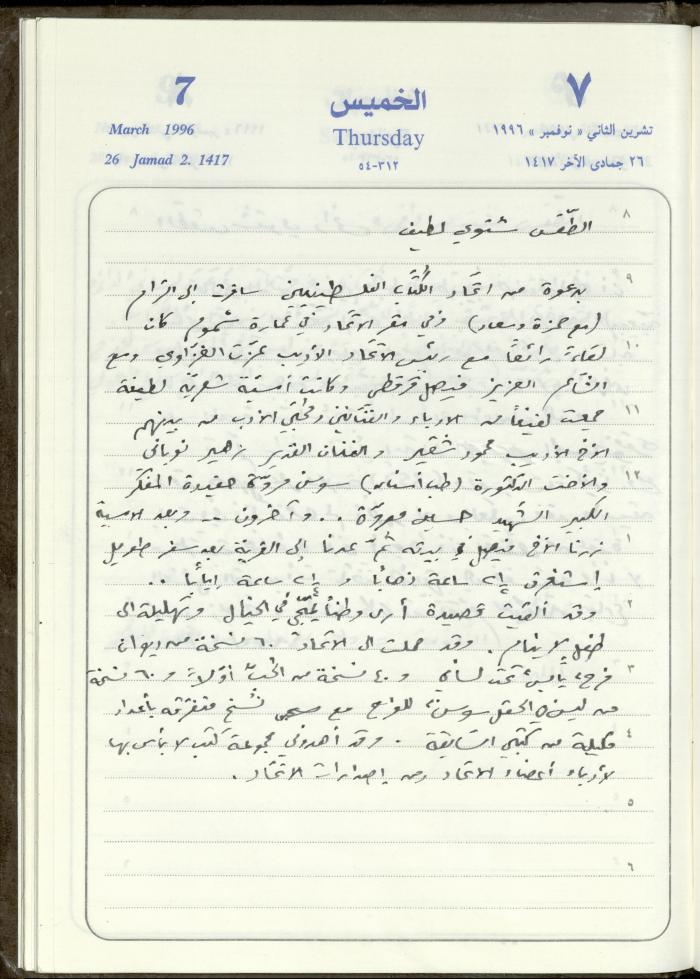 7
الخميس
٧
March 1996
Thursday
تشرين الثاني « نوفمبر » ١٩٩٦
26 Jamad 2. 1417
٣١٢-٥٤
٢٦ جمادى الآخر ١٤١٧
٨
الطّقس شتوي لطيف
٩
بدعوة من اتحاد الكتّاب الفلسطينيين سافرت إلى الرام
(مع حمزة وسعاد) وفي مقر الاتحاد في عمارة شموم كان
١٠
لقاءً رائعاً مع رئيس الاتحاد الأديب عزّت الغزّاوي ومع
الشاعر العزيز فيصل قرقطي وكانت أمسيّة شعريّة لطيفة
١١
جمعت لفيفاً من الادباء والفنّانين ومحبّي الأدب من بينهم
الأخ الأديب محمود شقير والفنان القدير زهير نوباني
١٢
والأخت الدكتورة (طب أسنان) سوسن مروّة حفيدة المفكّر
الكبير الشهيد حسين مروّة .. وآخرون .. وبعد الامسية
١
زرنا الأخ فيصل في بيته ثمّ عدنا إلى القرية بعد سفر طويل
إستغرق ساعة ذهاباً و ساعة إياباً ..
٢
وقد ألقيت قصيدة أرى وطناً في الخيال وتهليلة الى
طفل لا ينام . وقد حملت الى الاتحاد ٦٠ نسخة من ديوان
٣
تحت لساني و ٤٠ نسخة من الحبّ أوّلاً و ٦٠ نسخة
من ليس في الحقل سوسن مع نُسخ متفرّقة بأعداد
٤
قليلة من كتبي السّابقة . وقد أهدوني مجموعة كتب لا بأس بها
لأدباء أعضاء الاتحاد ومن إصدارات الاتّحاد .
٥
٦